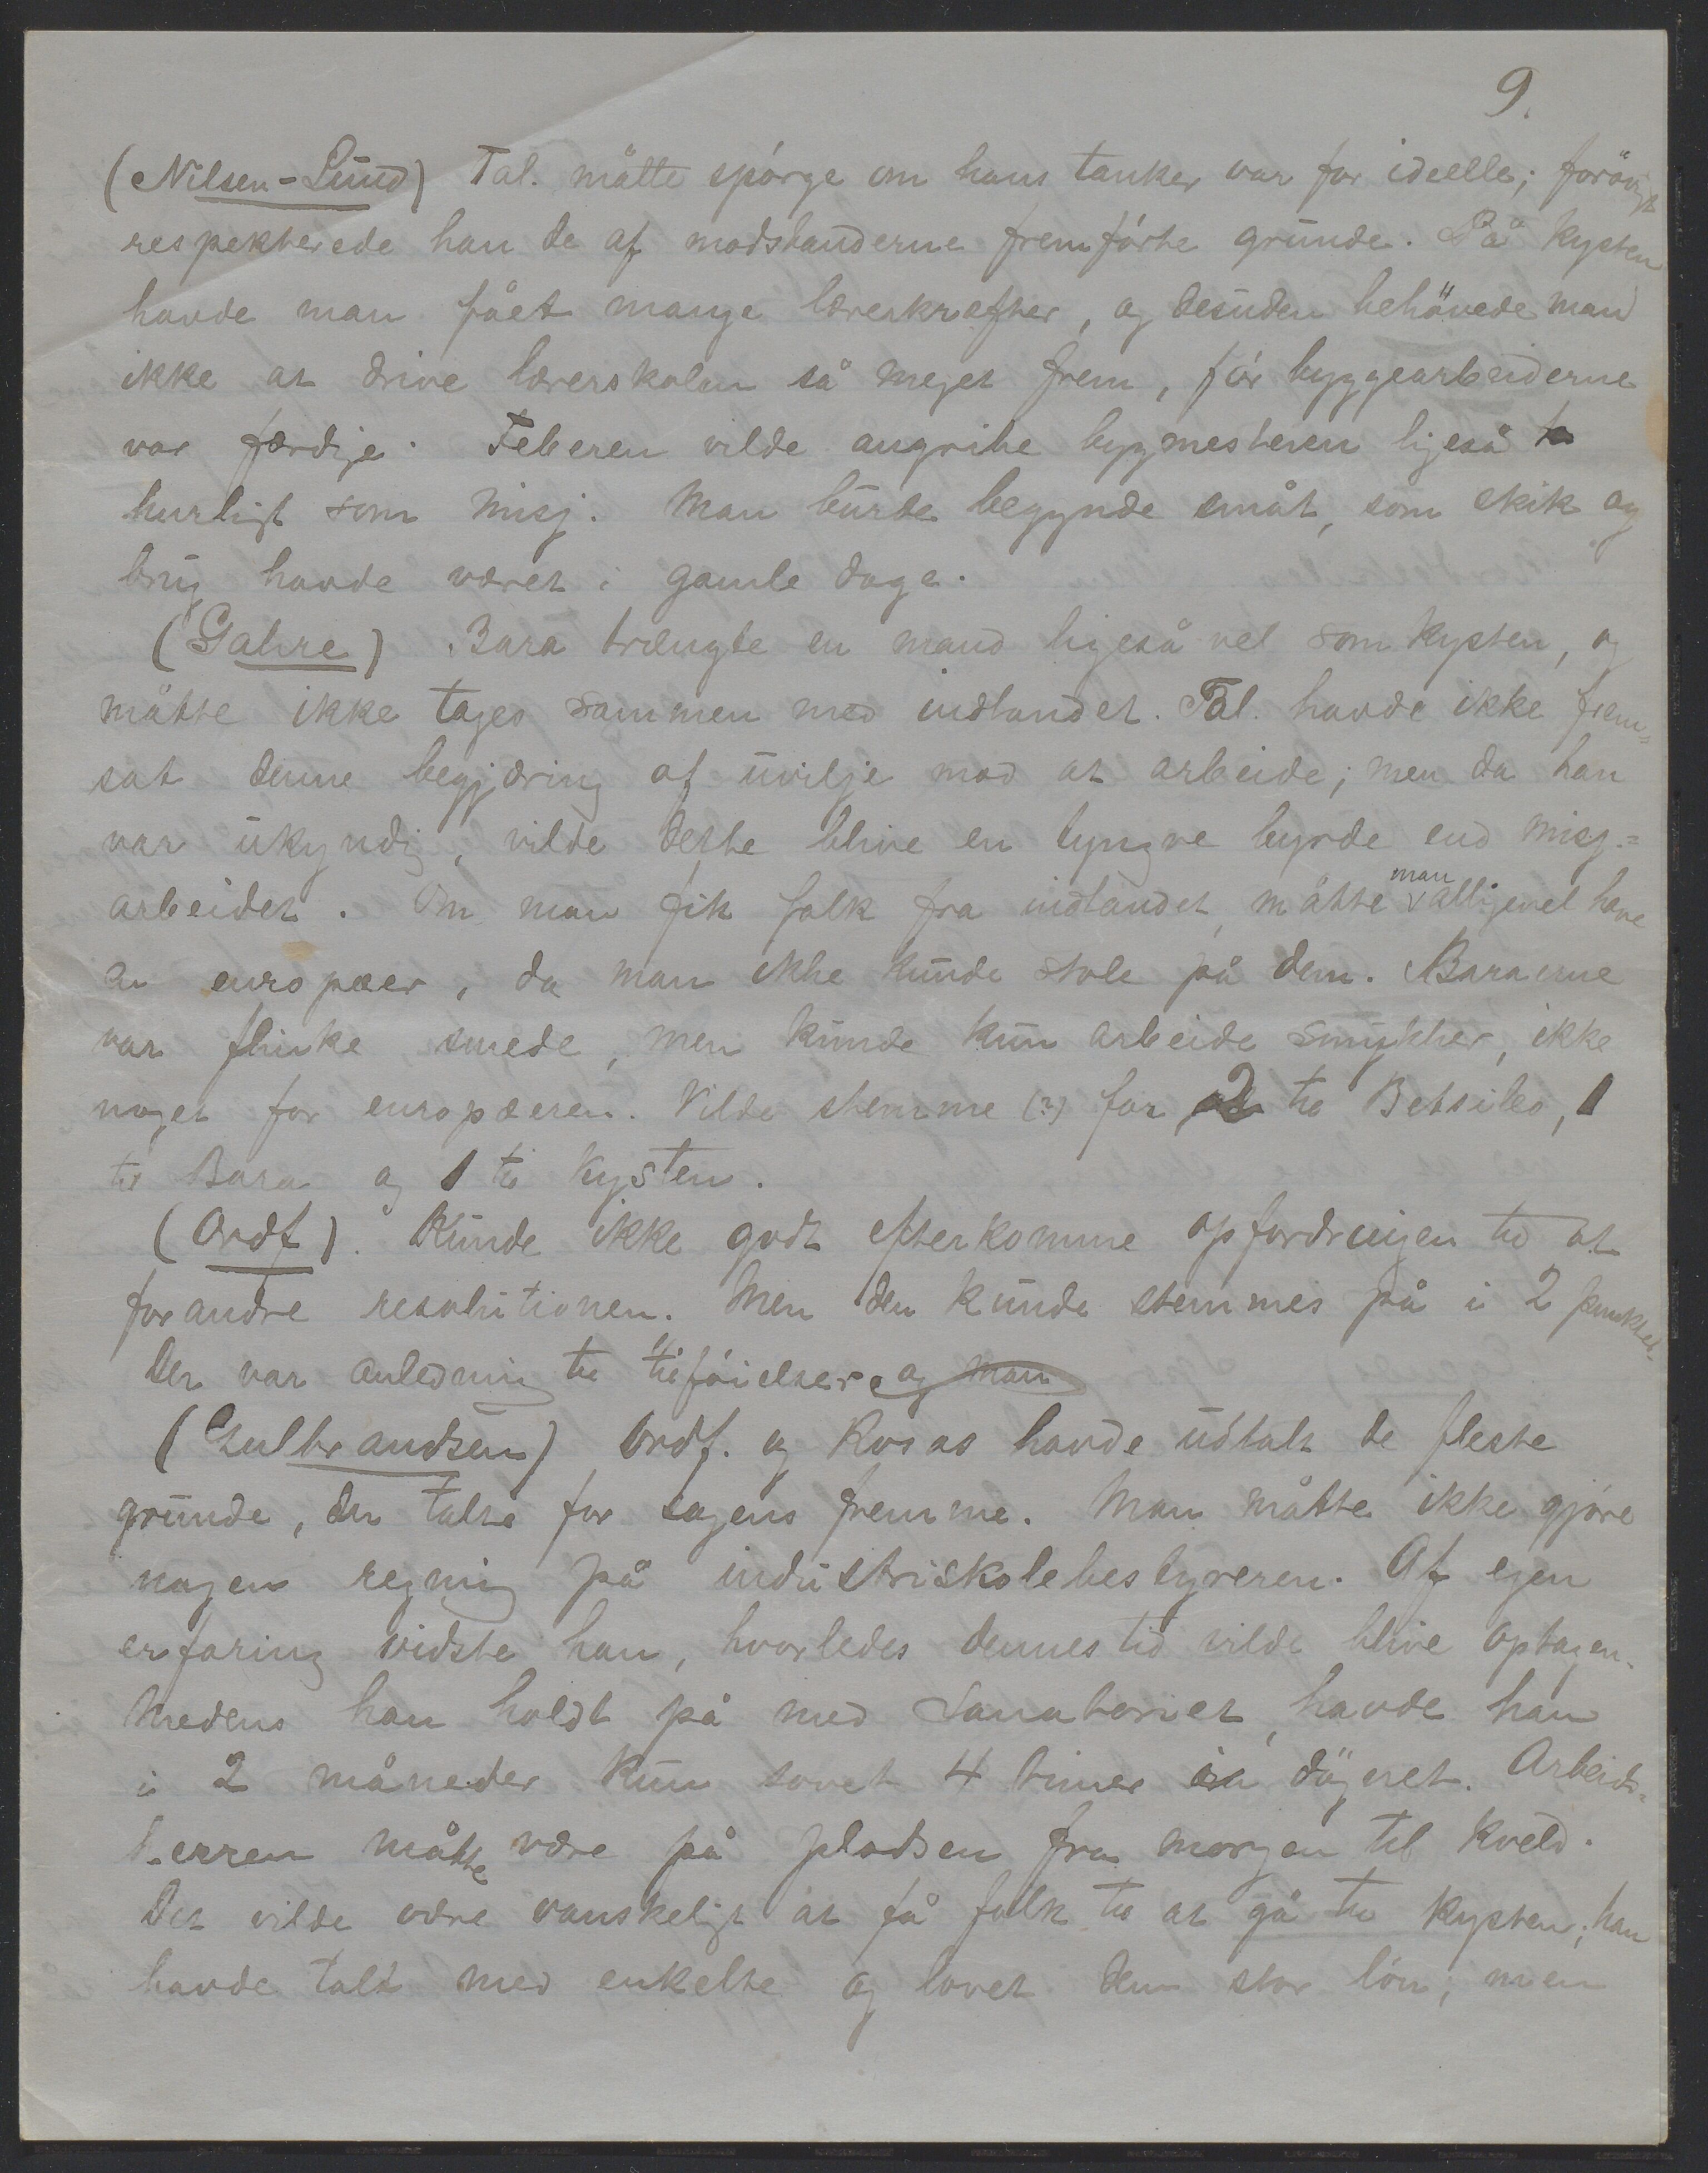 9.
(Nilsen-Lund) Tal. måtte spørge om hans tanker var for ideelle; forøvrigt
respekterede han de af modstanderne fremførte grunde. På kysten
havde man fået mange lærerkræfter, og desuden behøvede man
ikke at drive lærerskolen så meget frem, før byggearbeiderne
var færdige. Feberen vilde angribe bygmesteren ligeså
hurtigt som misj. Man burde begynde småt, som skik og
brug havde været i gamle dage.
(Gahre) Bara trængte en mand ligeså vel som kysten, og
måtte ikke tages sammen med indlandet. Tal. havde ikke frem=
sat denne begjæring af uvilje mod at arbeide; men da han
var ukyndig, vilde dette blive en tyngre byrde end misj.=
arbeidet. Om man fik folk fra indlandet, måtte man alligevel have
en europæer, da man ikke kunde stole på dem. Baraerne
var flinke smede, men kunde kun arbeide smykker, ikke
noget for europæeren. Vilde stemme (?) for 2 til Betsileo, 1
til Bara og 1 til kysten.
(Ordf). Kunde ikke godt efterkomme opfordringen til at
forandre resolutionen. Men den kunde stemmes på i 2 punkter.
Der var anledning til tilføielser. og man
(Gulbrandsen) Ordf. og Rosaas havde udtalt de fleste
grunde, der talte for sagens fremme. Man måtte ikke gjøre
nogen regning på industriskolebestyreren. Af egen
erfaring vidste han, hvorledes dennes tid vilde blive optagen.
Medens han holdt på med Sanatoriet, havde han
i 2 måneder kun sovet 4 timer i døgnet. Arbeids=
herren måtte være på pladsen fra morgen til kveld.
Det vilde være vanskeligt at få folk til at gå til kysten; han
havde talt med enkelte og lovet dem stor løn; men